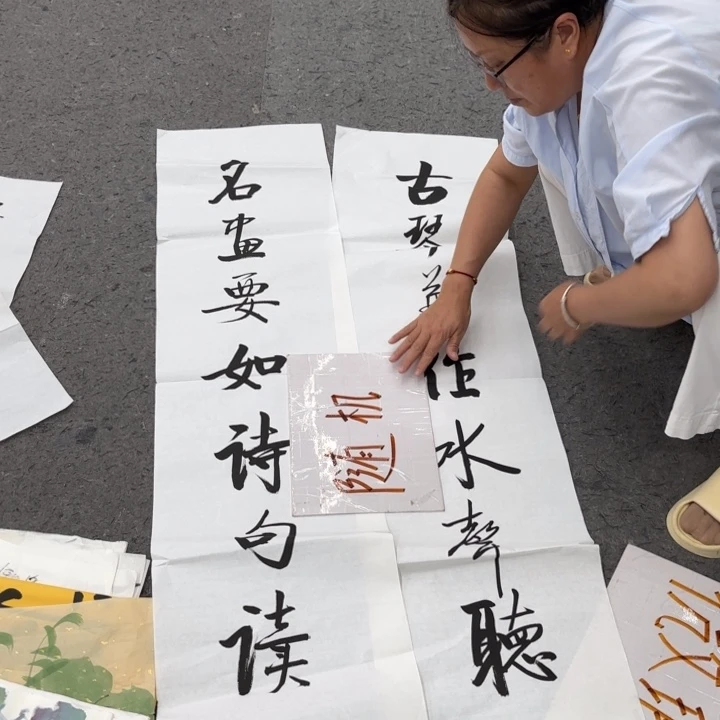 古琴作水聲聽
名畫要如诗句读
随机